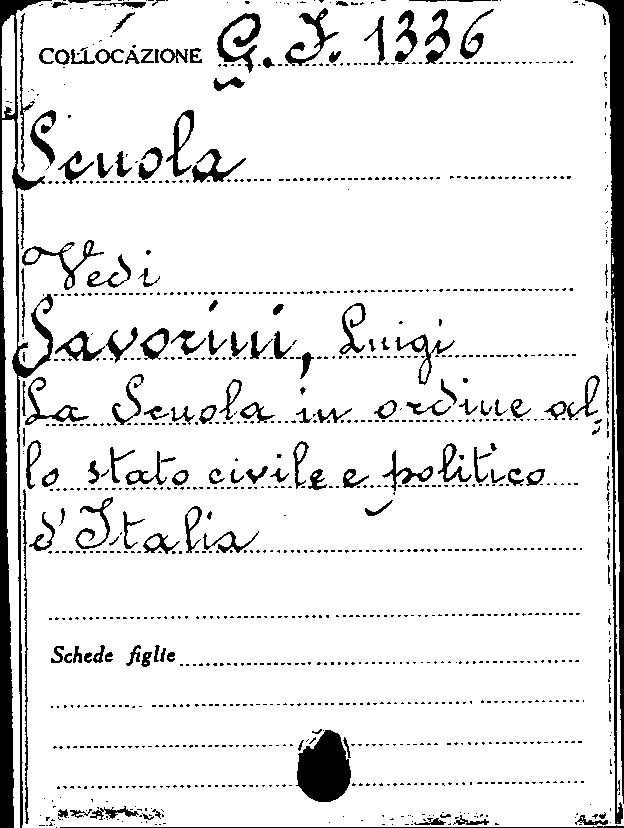 COLLOCAZIONE G. F. 1336
Scuola
Vedi
Savorini, Luigi
La Scuola in ordine al-
lo stato civile e politico
d'Italia
Schede figlie